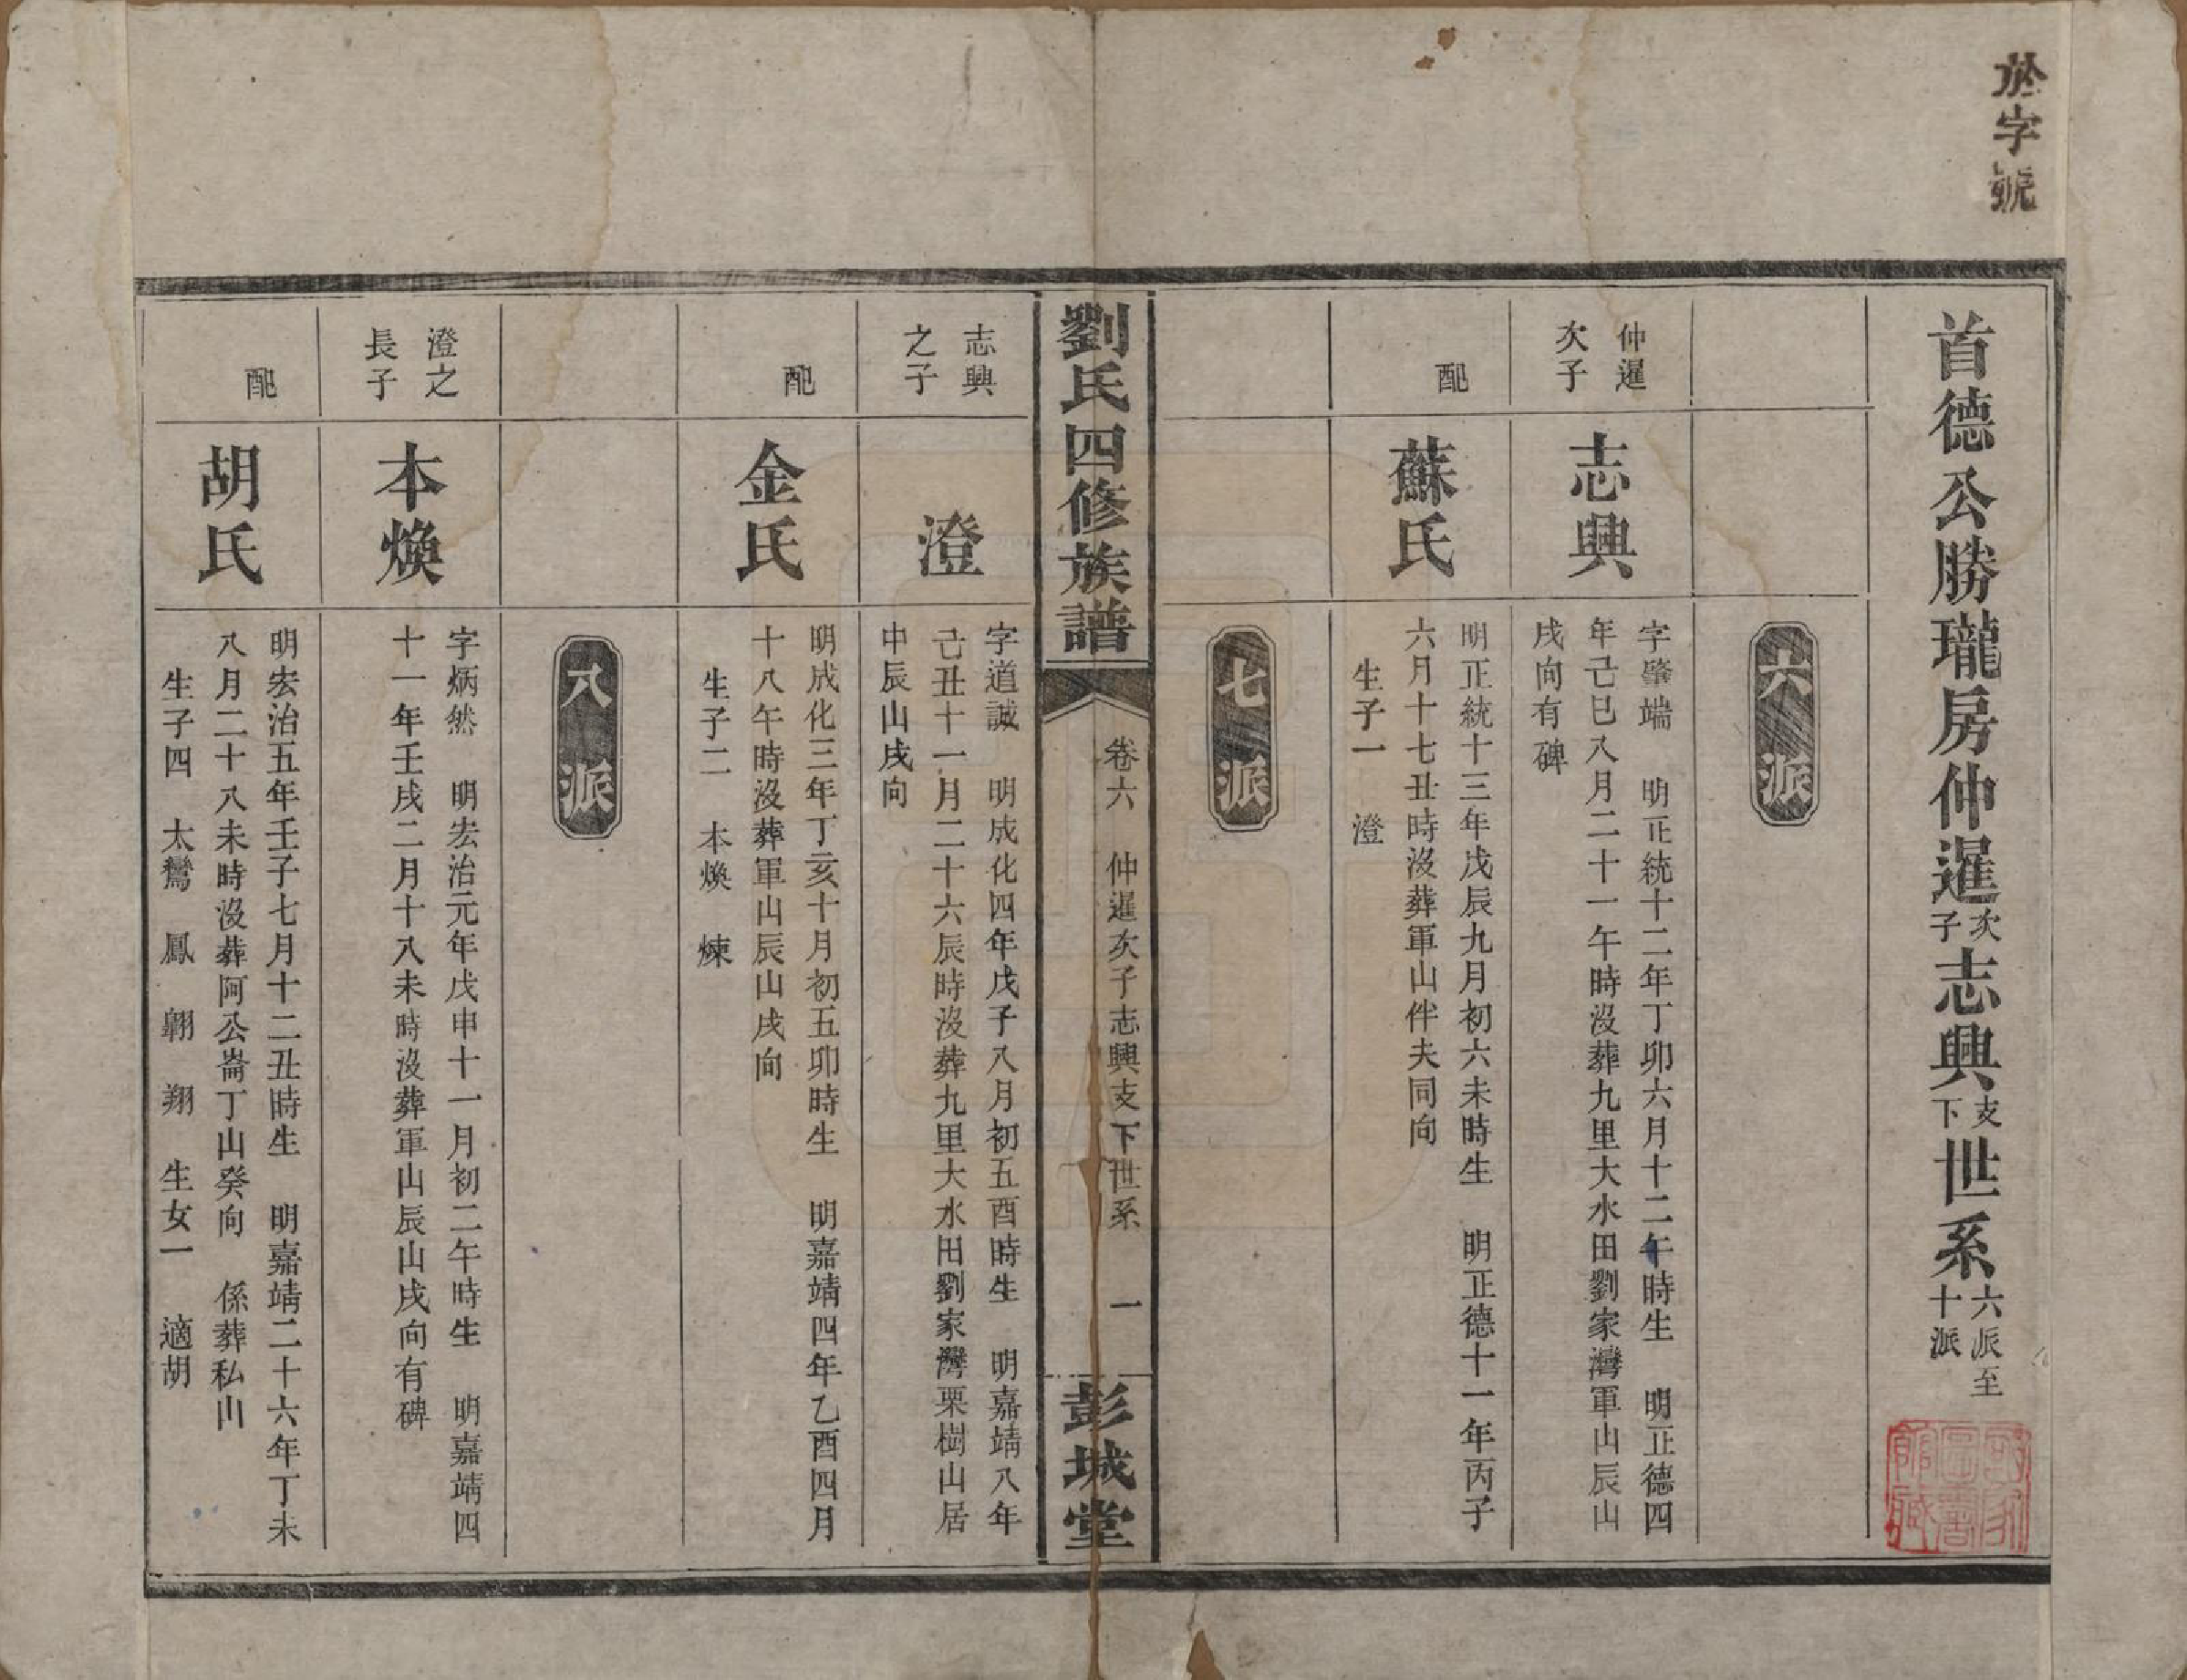 於字號
首德公勝瓏房仲暹次子志興支下世系六派至十派
六派
仲暹次子
志興
字肇端　明正統十二年丁卯六月十二午時生　明正德四
年己巳八月二十一午時沒葬九里大水田劉家灣軍山辰山
戌向有碑
配
蘇氏
明正統十三年戊辰九月初六未時生　明正德十一年丙子
六月十七丑時沒葬軍山伴夫同向
生子一　澄
七派
劉氏四修族譜
卷六　仲暹次子志興支下世系　一
彭城堂
志興之子
澄
字道誠　明成化四年戊子八月初五酉時生　明嘉靖八年
己丑十一月二十六辰時沒葬九里大水田劉家灣栗樹山居
中辰山戌向
配
金氏
明成化三年丁亥十月初五卯時生　明嘉靖四年乙酉四月
十八午時沒葬軍山辰山戌向
生子二　本煥　煉
八派
澄之長子
本煥
字炳然　明宏治元年戊申十一月初二午時生　明嘉靖四
十一年壬戌二月十八未時沒葬軍山辰山戌向有碑
配
胡氏
明宏治五年壬子七月十二丑時生　明嘉靖二十六年丁未
八月二十八未時沒葬阿公崙丁山癸向　係葬私山
生子四　太鸞　鳳　翱　翔　生女一　適胡
國家圖書館藏